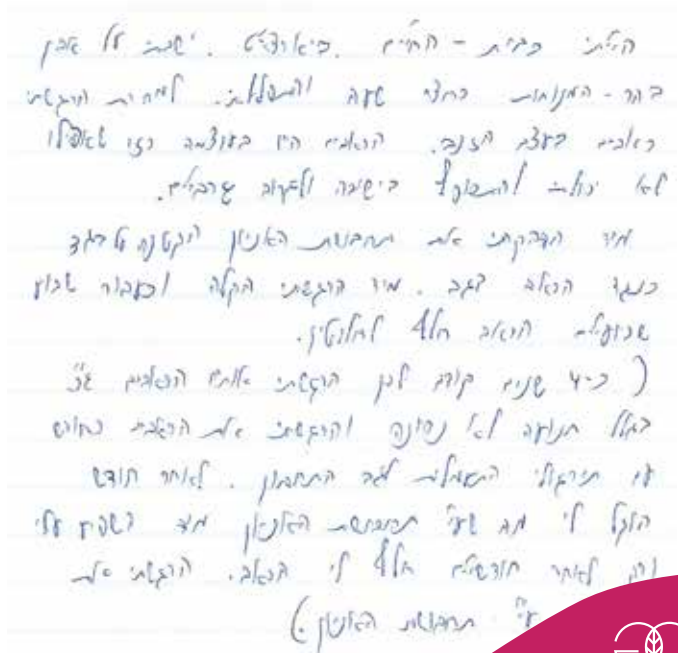 הייתי בבית - החיים ביארצייט. ישבתי על אבן
בהר - המנוחות כחצי שעה והתפללתי. למחרת הרגשתי
כאבים בעצם הזנב. הכאבים היו בעוצמה כזו שאפילו
לא יכולתי להתכופף בישיבה ולגרוב גרביים.
מיד הדבקתי את תחבושת האניון הקטנה על הגב
כנגד הכאב בגב. מיד הרגשתי הקלה וכעבור שבוע
שבועיים הכאב חלף לחלוטין.
( כ-4 שנים קודם לכן הרגשתי אותם הכאבים
בגלל תנועה לא נכונה והרגשתי את הכאבים כחודש
עם תירגולי התעמלות לגב התחתון. לאחר חודש
הוקל לי תחבושת האניון השפיע עלי
לאחר חודשיים חלף לי הכאב. הרגשתי את
ע"י תחבושת האניון.)